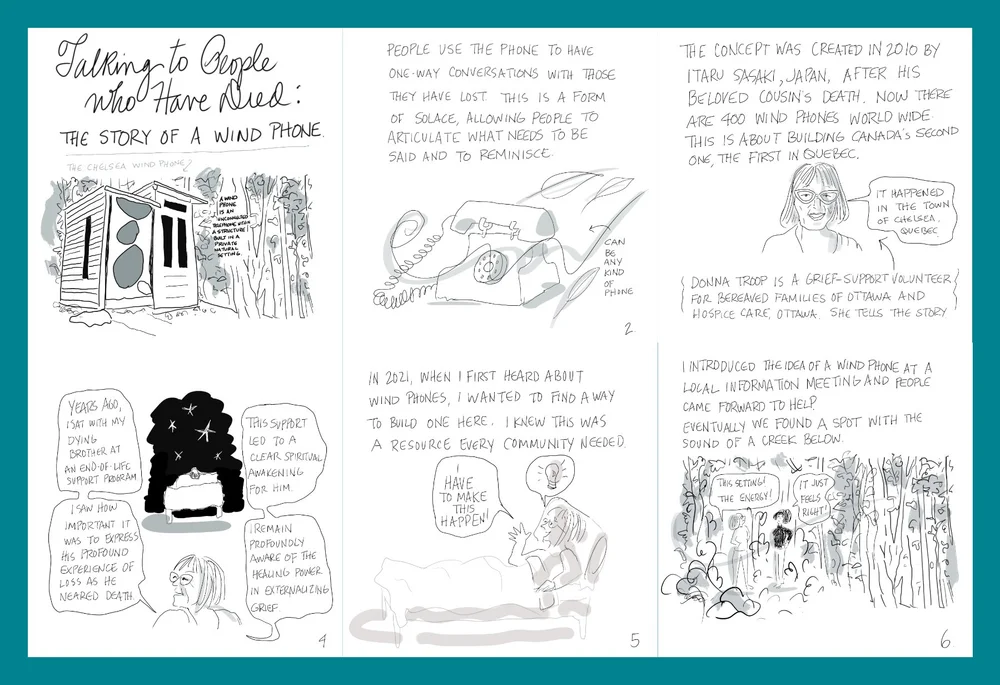 Talking to People
who Have Died:
THE STORY OF A WIND PHONE.
THE CHELSEA WIND PHONE
A WIND
PHONE
IS AN
UNCONNECTED
TELEPHONE WITHIN
A STRUCTURE
BUILT IN A
PRIVATE
NATURAL
SETTING.
PEOPLE USE THE PHONE TO HAVE
ONE-WAY CONVERSATIONS WITH THOSE
THEY HAVE LOST. THIS IS A FORM
OF SOLACE, ALLOWING PEOPLE TO
ARTICULATE WHAT NEEDS TO BE
SAID AND TO REMINISCE.
CAN
BE
ANY
KIND
OF
PHONE
2
THE CONCEPT WAS CREATED IN 2010 BY
ITARU SASAKI, JAPAN, AFTER HIS
BELOVED COUSIN'S DEATH. NOW THERE
ARE 400 WIND PHONES WORLD WIDE.
THIS IS ABOUT BUILDING CANADA'S SECOND
ONE, THE FIRST IN QUEBEC.
IT HAPPENED
IN THE TOWN
OF CHELSEA.
QUEBEC
DONNA TROOP IS A GRIEF-SUPPORT VOLUNTEER
FOR BEREAVED FAMILIES OF OTTAWA AND
HOSPICE CARE, OTTAWA. SHE TELLS THE STORY
YEARS AGO,
I SAT WITH MY
DYING
BROTHER AT
AN END-OF-LIFE
SUPPORT PROGRAM
THIS SUPPORT
LED TO A
CLEAR SPIRITUAL
AWAKENING
FOR HIM.
I SAW HOW
IMPORTANT IT
WAS TO EXPRESS
HIS PROFOUND
EXPERIENCE OF
LOSS AS HE
NEARED DEATH.
I REMAIN
PROFOUNDLY
AWARE OF THE
HEALING POWER
IN EXTERNALIZING
GRIEF.
4
IN 2021, WHEN I FIRST HEARD ABOUT
WIND PHONES, I WANTED TO FIND A WAY
TO BUILD ONE HERE. I KNEW THIS WAS
A RESOURCE EVERY COMMUNITY NEEDED.
I
HAVE
TO MAKE
THIS
HAPPEN!
5
I INTRODUCED THE IDEA OF A WIND PHONE AT A
LOCAL INFORMATION MEETING AND PEOPLE
CAME FORWARD TO HELP.
EVENTUALLY WE FOUND A SPOT WITH THE
SOUND OF A CREEK BELOW.
THIS SETTING!
THE ENERGY!
IT JUST
FEELS
RIGHT!
6